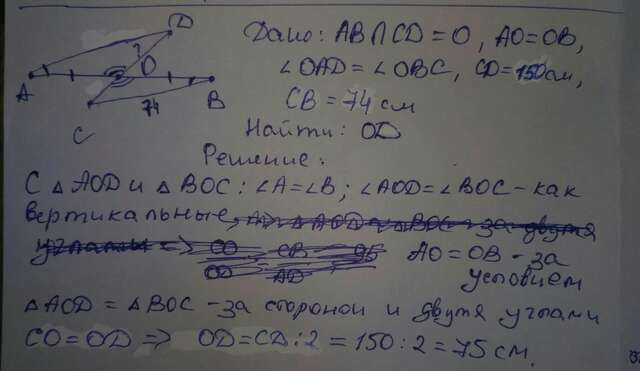 D
Дано: AB∩CD=O, AO=OB,
?
O
∠OAD=∠OBC, CD=150см,
A
74
B
CB=74 см
C
Найти: OD
Решение:
С △AOD и △BOC: ∠A=∠B; ∠AOD=∠BOC - как
вертикальные,
AO=OB - за
условием
△AOD = △BOC - за стороной и двумя углами
CO=OD => OD=CD:2=150:2=75 см.